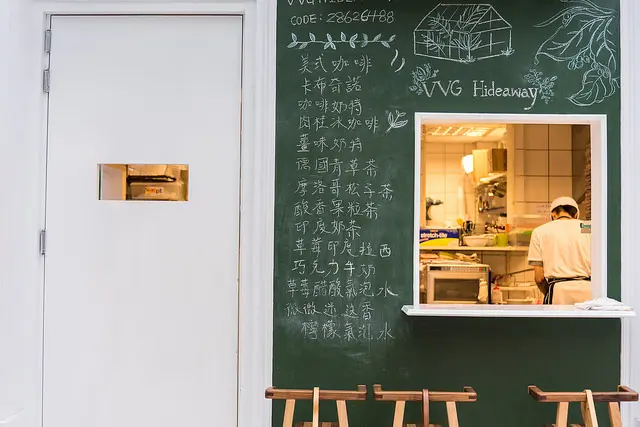 CODE: 28626488
美式咖啡
卡布奇諾
咖啡奶特
肉桂冰咖啡
薑味奶特
德國青草茶
摩洛哥松子茶
酸香果粒茶
印度奶茶
草莓印度拉西
巧克力牛奶
草莓醋酸氣泡水
微微迷迭香
檸檬氣泡水
VVG Hideaway
stretch-tite